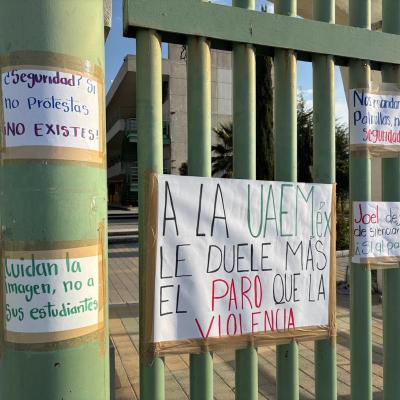 ¿Seguridad? Si
no Protestas
¡NO EXISTES!
Cuidan la
imagen, no a
sus estudiantes
A LA UAEMéx
LE DUELE MÁS
EL PARO QUE LA
VIOLENCIA
Nos mandan
Patrullas, no
seguridad
Joel de
de silenciar